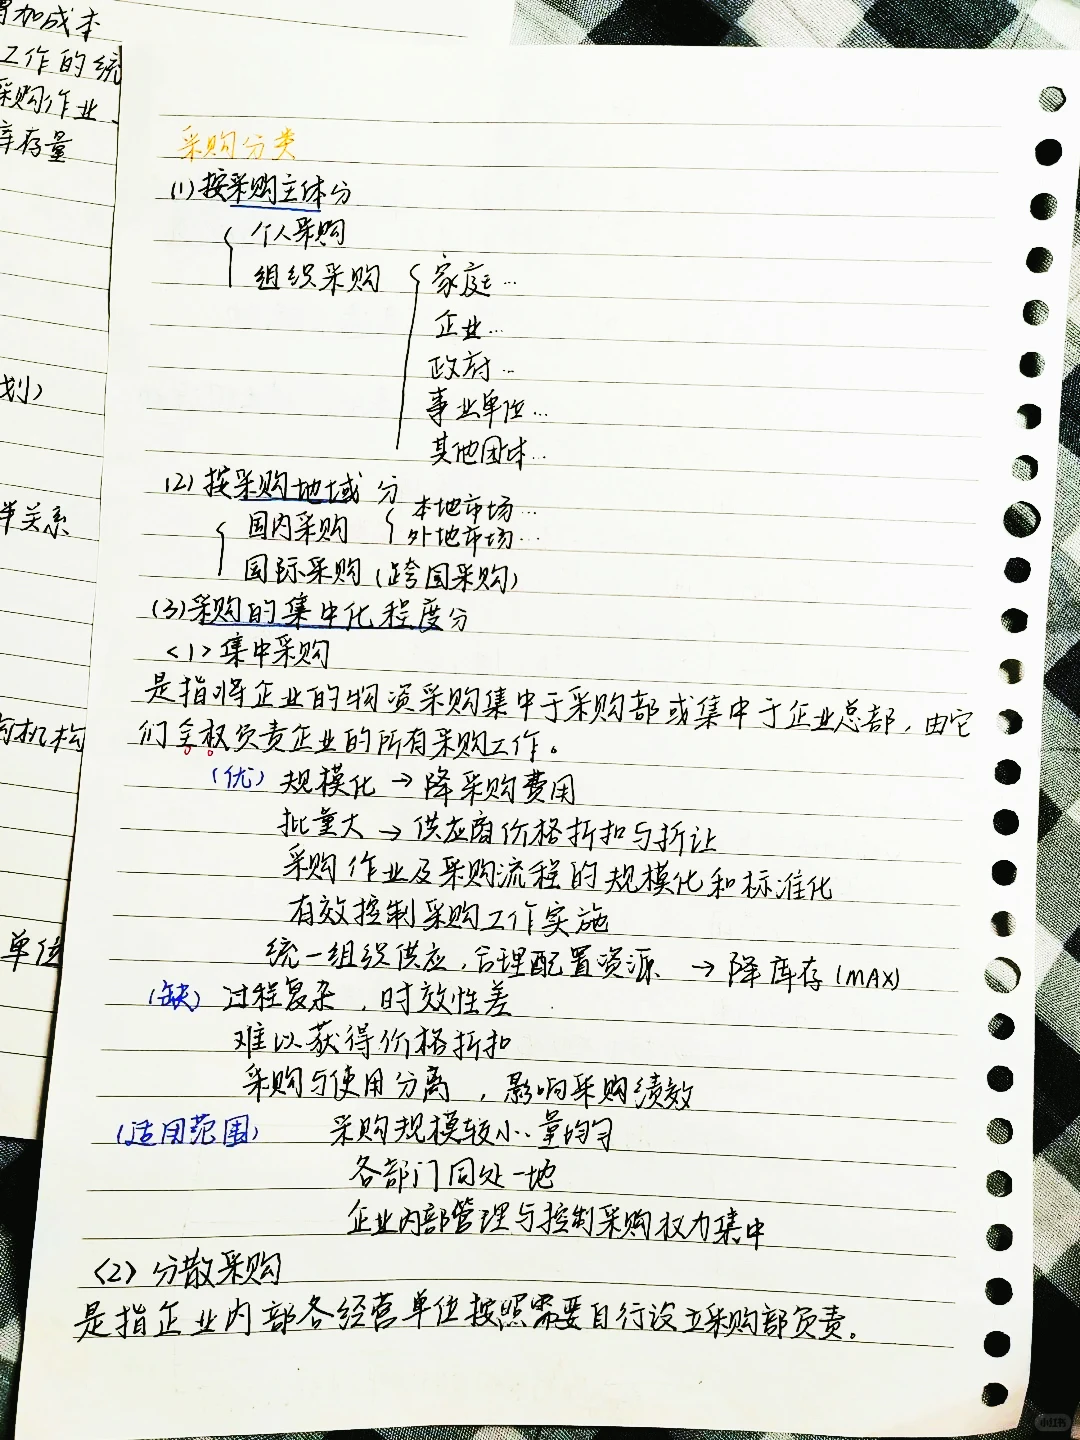 增加成本
工作的统
采购作业、
库存量
划)
单关系
构机构
单位
采购分类
(1)按采购主体分
个人采购
组织采购 家庭…
企业…
政府…
事业单位…
其他团体…
(2)按采购地域分
国内采购 本地市场…
外地市场…
国际采购(跨国采购)
(3)采购的集中化程度分
<1>集中采购
是指将企业的物资采购集中于采购部或集中于企业总部,由它
们全权负责企业的所有采购工作。
(优) 规模化→降采购费用
批量大→供应商价格折扣与折让
采购作业及采购流程的规模化和标准化
有效控制采购工作实施
统一组织供应,合理配置资源→降库存(MAX)
(缺) 过程复杂,时效性差
难以获得价格折扣
采购与使用分离,影响采购绩效
(适用范围) 采购规模较小、量均匀
各部门同处一地
企业内部管理与控制采购权力集中
<2>分散采购
是指企业内部各经营单位按照需要自行设立采购部负责。
小红书